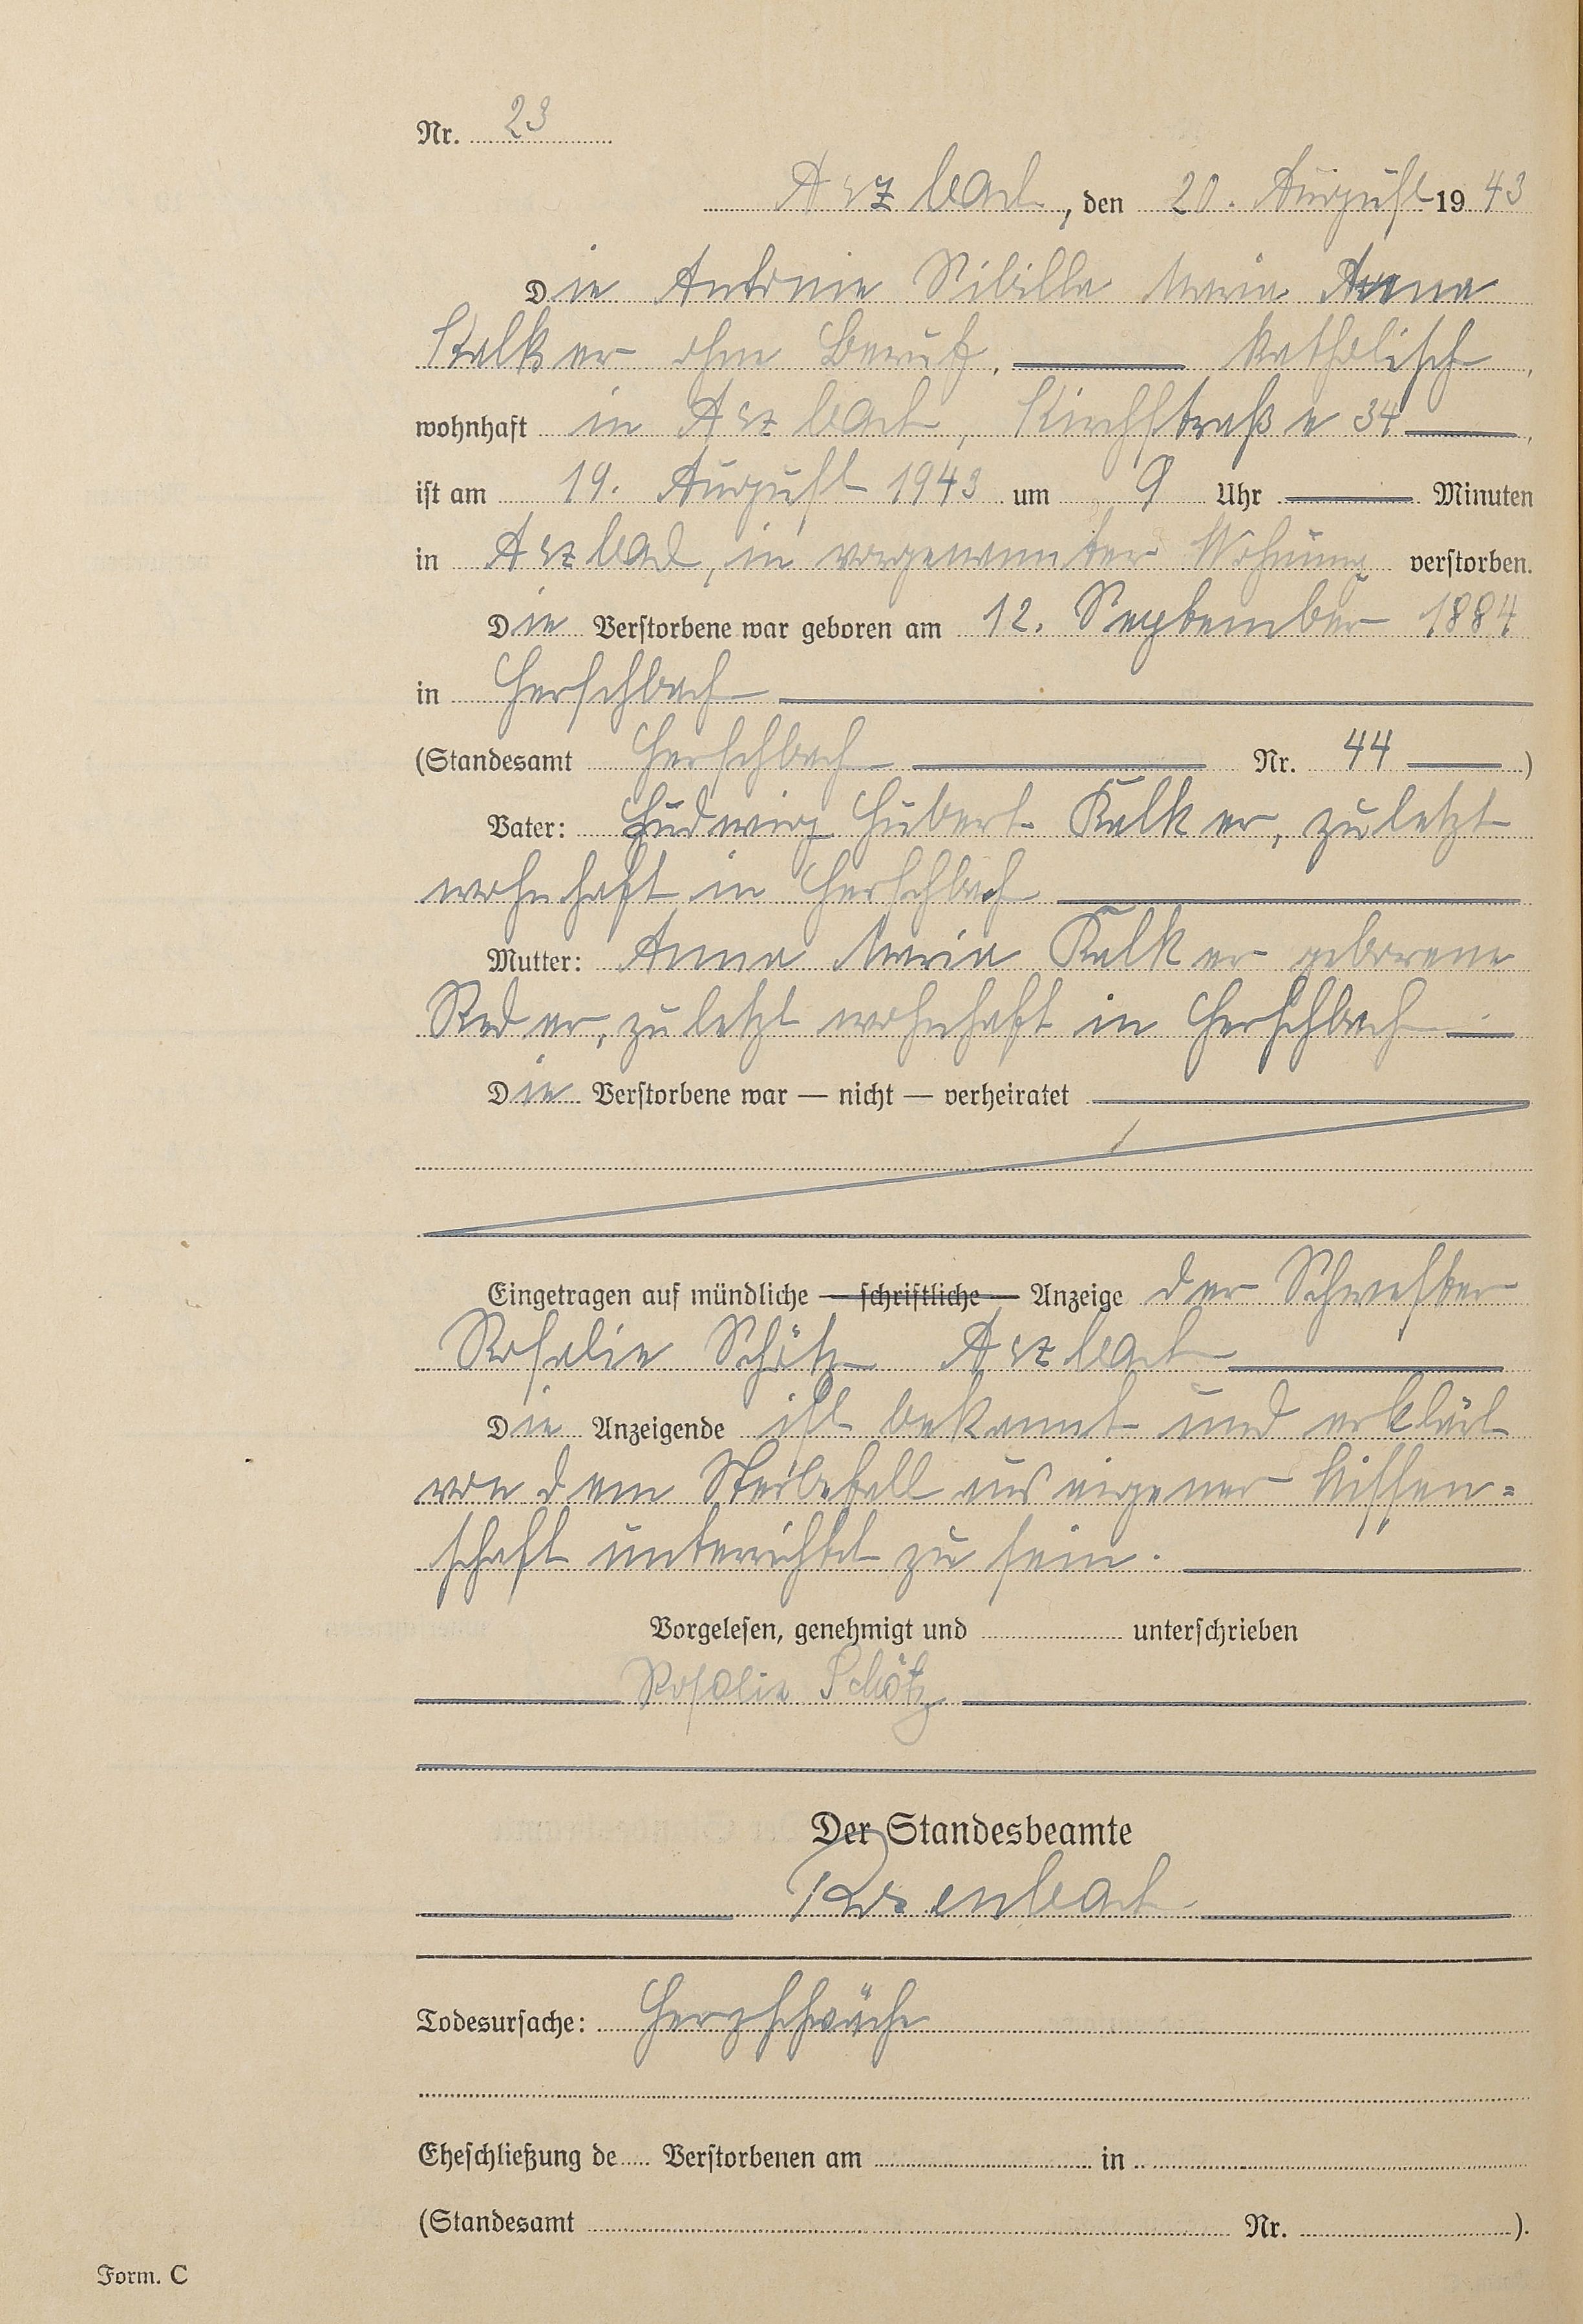 Nr. 23
Arzbach, den 20. August 1943
Die Antonie Sibilla Maria Anna
Kalker ohne Beruf, katholisch,
wohnhaft in Arzbach, Kirchstraße 34,
ist am 19. August 1943 um 9 Uhr Minuten
in Arzbach, in vorgenannter Wohnung verstorben.
Die Verstorbene war geboren am 12. September 1884
in Herschbach
(Standesamt Herschbach Nr. 44)
Vater: Ludwig Hubert Kalker, zuletzt
wohnhaft in Herschbach
Mutter: Anna Maria Kalker geborene
Reder, zuletzt wohnhaft in Herschbach
Die Verstorbene war — nicht — verheiratet
Eingetragen auf mündliche — schriftliche — Anzeige der Schwester
Rosalie Schötz Arzbach
Die Anzeigende ist bekannt und erklärt
von dem Sterbefall aus eigener Wissen=
schaft unterrichtet zu sein.
Vorgelesen, genehmigt und unterschrieben
Rosalie Schötz
Der Standesbeamte
Rosenbach
Todesursache: Herzschwäche
Eheschließung de Verstorbenen am in
(Standesamt Nr. ).
Form. C